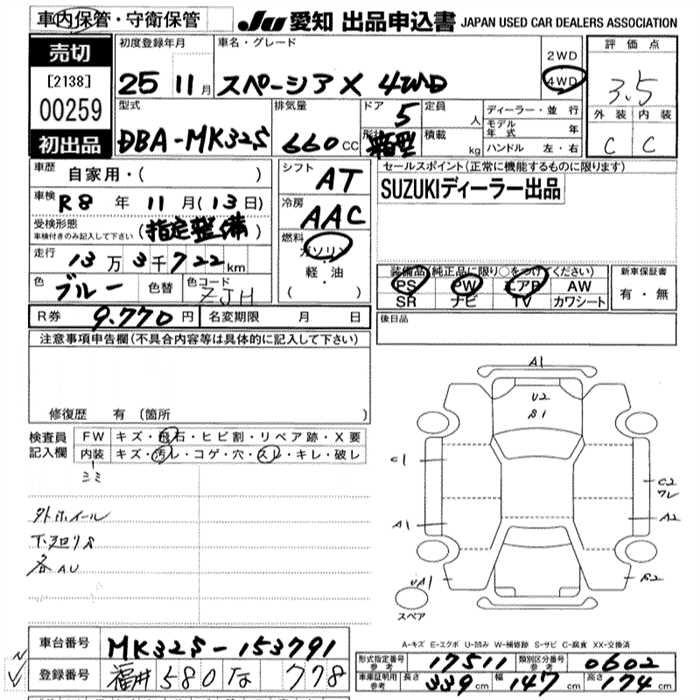 車内保管・守衛保管
JU 愛知 出品申込書 JAPAN USED CAR DEALERS ASSOCIATION
売切
[2138]
00259
初出品
初度登録年月
25 11月
車名・グレード
スペーシア X 4WD
2WD
4WD
評価点
3.5
外装 内装
C C
型式
DBA-MK32S
排気量
660cc
ドア
5
形状
箱型
定員
人
積載
kg
ディーラー・並行
モデル年式 年
ハンドル 左・右
車歴
自家用・( )
車検 R8 年 11 月(13日)
受検形態
車検付きのみ記入して下さい (指定整備)
走行 13万3千722km
色 ブルー 色替 色コード ZJH
シフト
AT
冷房
AAC
燃料
ガソリン
軽・油
( )
セールスポイント(正常に機能するものに限ります)
SUZUKIディーラー出品
装備品(純正品に限り○をつけてください)
PS PW エアB AW
SR ナビ TV カワシート
新車保証書
有・無
R券 9.770円 名変期限 月 日
後日品
注意事項申告欄(不具合内容等は具体的に記入して下さい)
修復歴 有(箇所
検査員記入欄
FW キズ・飛石・ヒビ割・リペア跡・X要
内装 キズ・汚レ・コゲ・穴・スレ・キレ・破レ
ミミ
外ホイール
下廻りS
各AU
A1
U2
B1
C1
C2
ワレ
A1
A2
UA1
B2
スペア
A-キズ E-エクボ U-凹み W-補修跡 S-サビ C-腐食 XX-交換済
車台番号 MK32S-153791
登録番号 福井 580 な 778
形式指定番号参考 17511 類別区分番号参考 0602
車庫証明用参考 長さ 339cm 幅 147cm 高さ 174cm